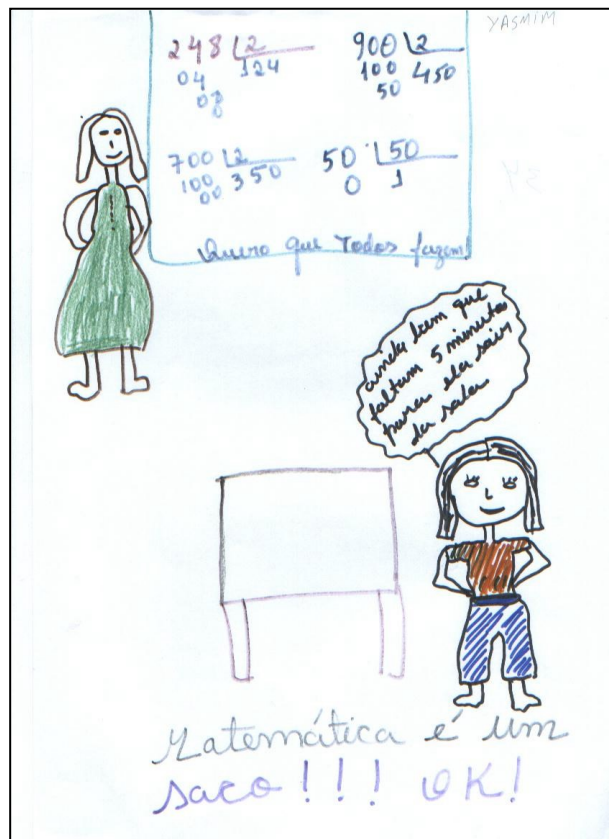 YASMIM
248 2
04 124
08
0
900 2
100 450
50
700 2
100 350
00
50 50
0 1
Quero que Todos fazem!
ainda bem que
faltam 5 minutos
para ela sair
da sala
Matemática é um
saco!!! OK!